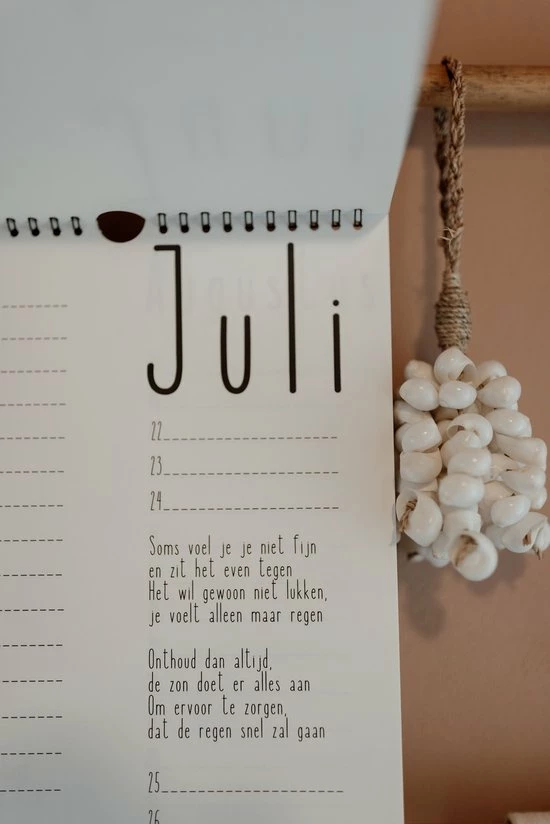 Juli
22
23
24
Soms voel je je niet fijn
en zit het even tegen
Het wil gewoon niet lukken,
je voelt alleen maar regen
Onthoud dan altijd,
de zon doet er alles aan
Om ervoor te zorgen,
dat de regen snel zal gaan
25
26